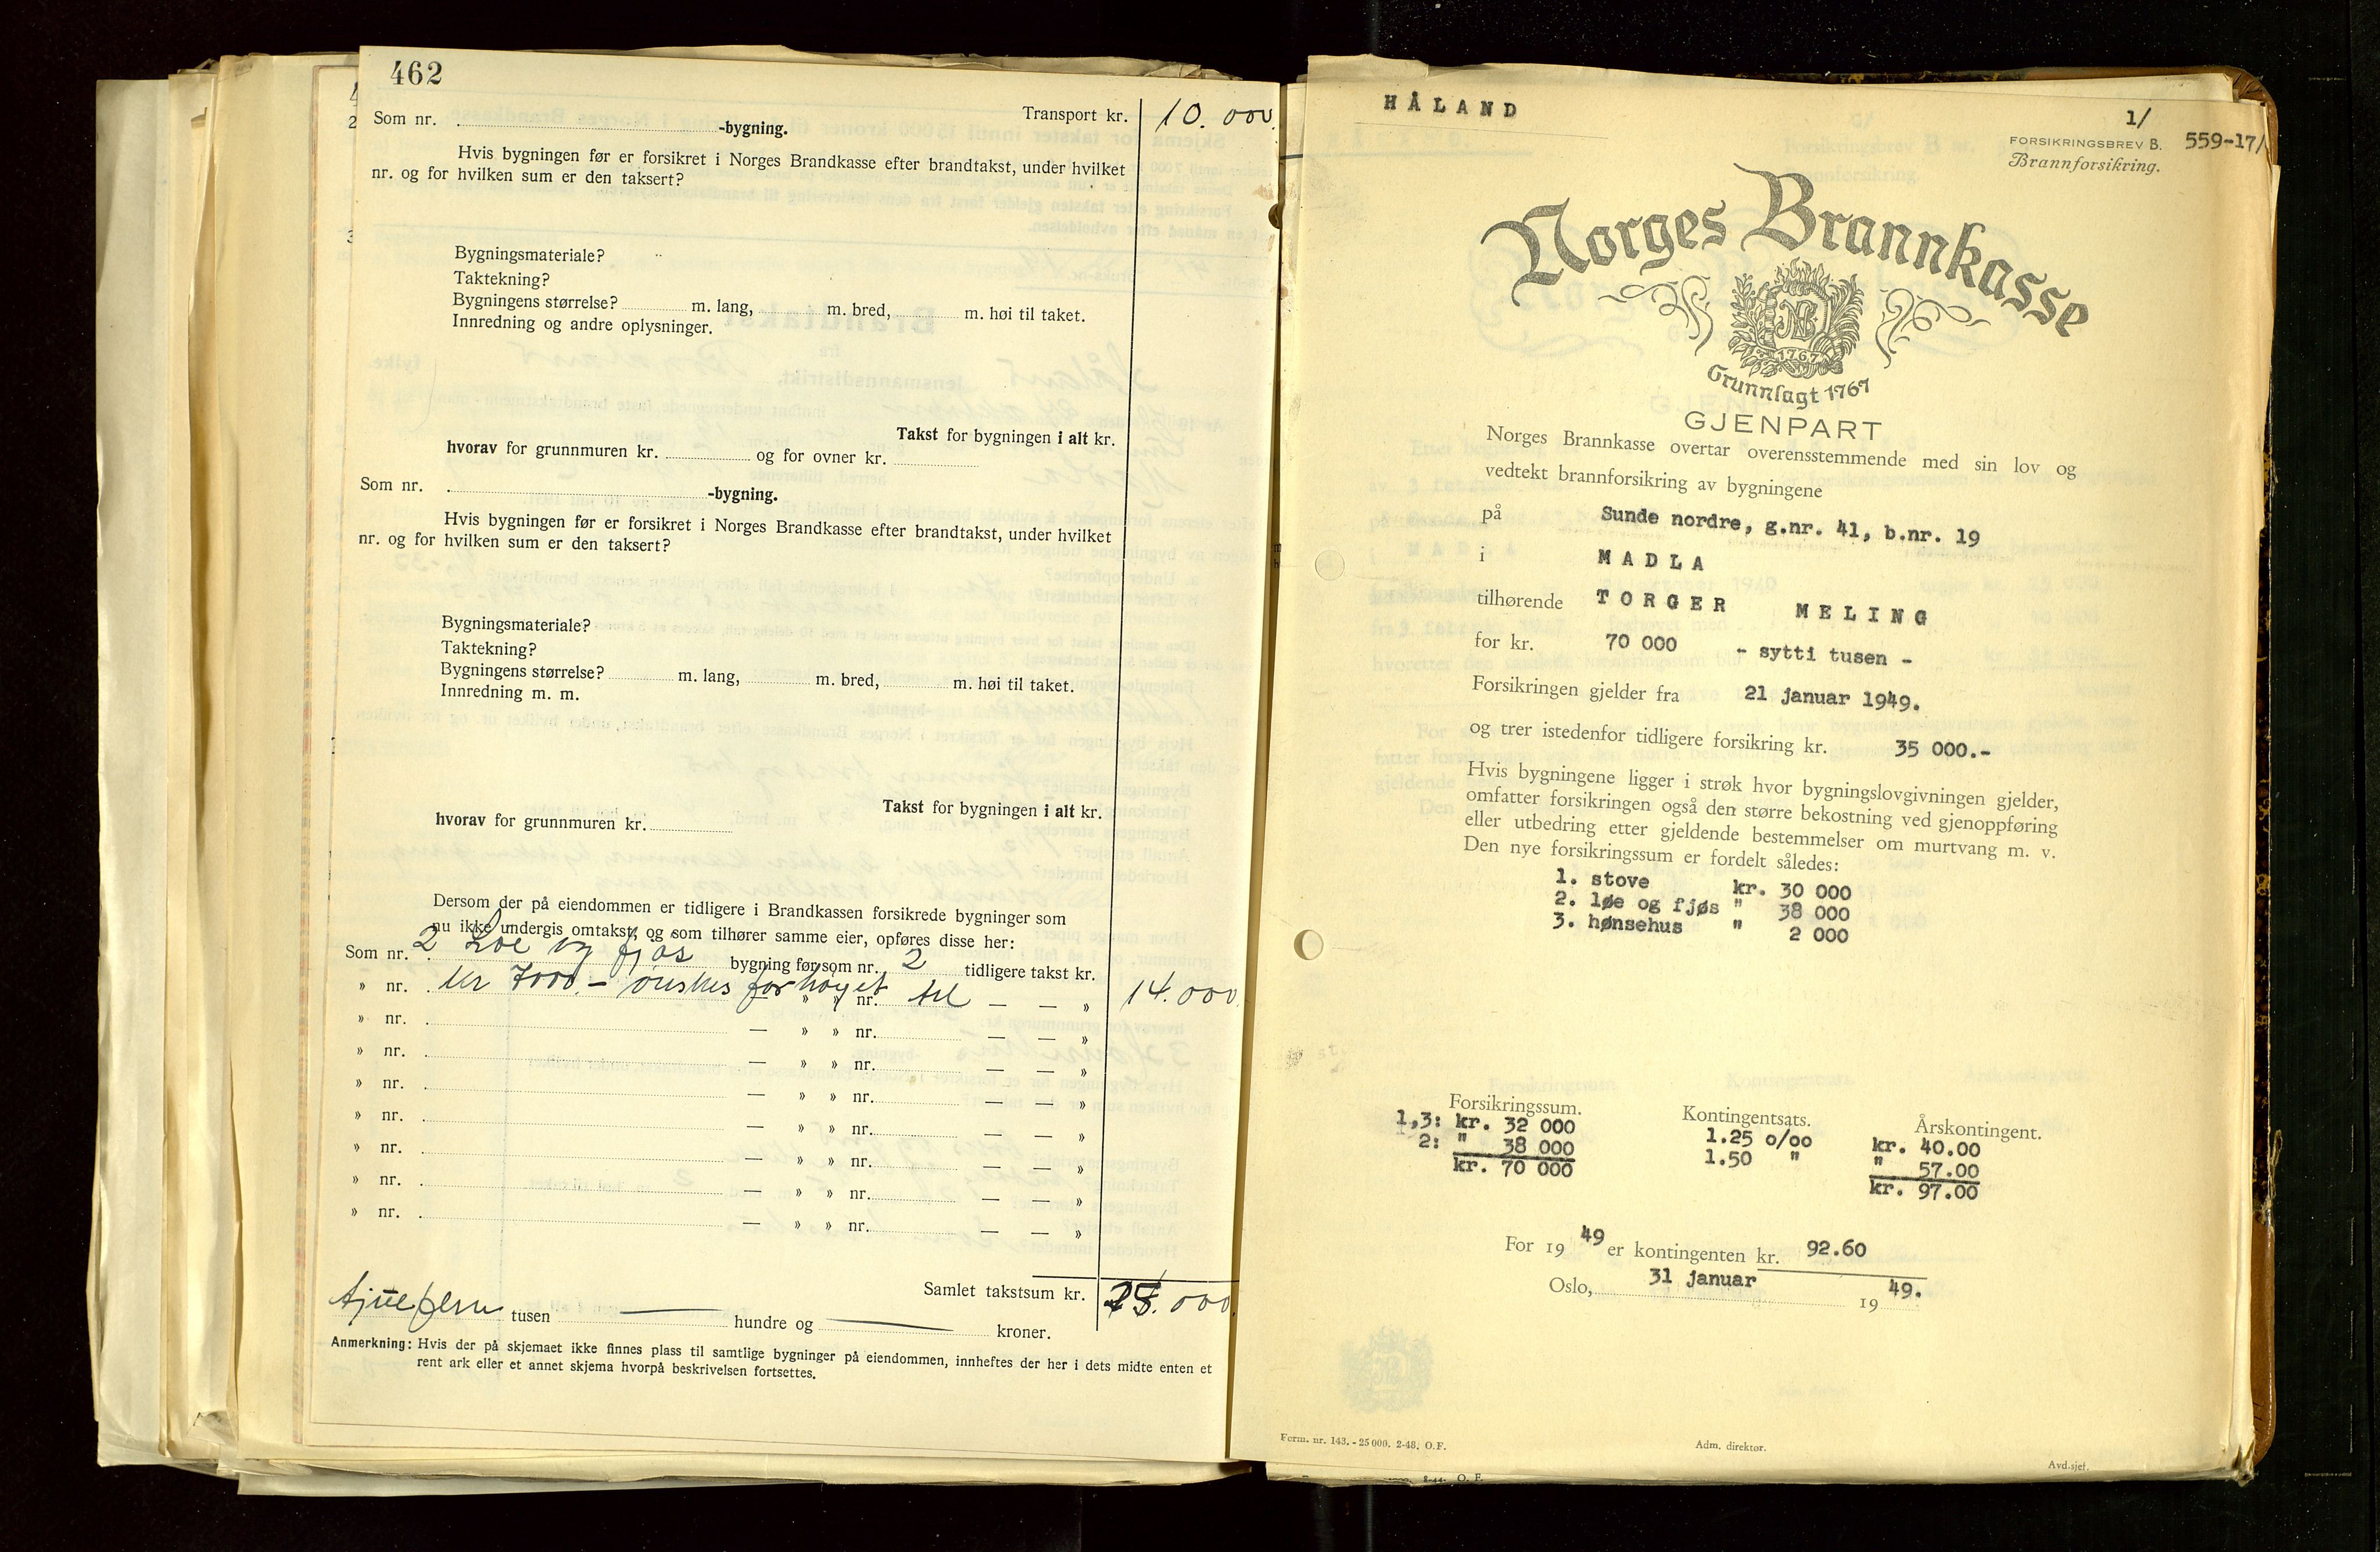 462
Transport kr. 10.000.
Som nr. -bygning.
Hvis bygningen før er forsikret i Norges Brandkasse efter brandtakst, under hvilket
nr. og for hvilken sum er den taksert?
Bygningsmateriale?
Taktekning?
Bygningens størrelse? m. lang, m. bred, m. høi til taket.
Innredning og andre oplysninger.
Takst for bygningen i alt kr.
hvorav for grunnmuren kr. og for ovner kr.
Som nr. -bygning.
Hvis bygningen før er forsikret i Norges Brandkasse efter brandtakst, under hvilket
nr. og for hvilken sum er den taksert?
Bygningsmateriale?
Taktekning?
Bygningens størrelse? m. lang, m. bred, m. høi til taket.
Innredning m. m.
Takst for bygningen i alt kr.
hvorav for grunnmuren kr.
Dersom der på eiendommen er tidligere i Brandkassen forsikrede bygninger som
nu ikke undergis omtakst, og som tilhører samme eier, opføres disse her:
Som nr. 2 Løe og fjøs bygning før som nr. 2 tidligere takst kr.
» nr. kr 7000.- ønskes forhøyet » nr. til — — » 14.000.
» nr. — » » nr. — — »
» nr. — » » nr. — — »
» nr. — » » nr. — — »
» nr. — » » nr. — — »
» nr. — » » nr. — — »
» nr. — » » nr. — — »
» nr. — » » nr. — — »
Samlet takstsum kr. .000.
tusen — hundre og — kroner.
Anmerkning: Hvis der på skjemaet ikke finnes plass til samtlige bygninger på eiendommen, innheftes der her i dets midte enten et
rent ark eller et annet skjema hvorpå beskrivelsen fortsettes.
HÅLAND
1/
FORSIKRINGSBREV B. 559-17/
Brannforsikring.
Norges Brannkasse
NB
1767
Grunnlagt 1767
GJENPART
Norges Brannkasse overtar overensstemmende med sin lov og
vedtekt brannforsikring av bygningene
på Sunde nordre, g.nr. 41, b.nr. 19
i MADLA
tilhørende TORGER MELING
for kr. 70 000 - sytti tusen -
Forsikringen gjelder fra 21 januar 1949.
og trer istedenfor tidligere forsikring kr. 35 000.-
Hvis bygningene ligger i strøk hvor bygningslovgivningen gjelder,
omfatter forsikringen også den større bekostning ved gjenoppføring
eller utbedring etter gjeldende bestemmelser om murtvang m. v.
Den nye forsikringssum er fordelt således:
1. stove kr. 30 000
2. løe og fjøs " 38 000
3. hønsehus " 2 000
Forsikringssum. Kontingentsats. Årskontingent.
1,3: kr. 32 000 1.25 o/oo kr. 40.00
2: " 38 000 1.50 " " 57.00
kr. 70 000 kr. 97.00
For 1949 er kontingenten kr. 92.60
Oslo, 31 januar 1949.
Form. nr. 143. - 25 000. 2-48. O.F.
Adm. direktør.
Avd.sjef.